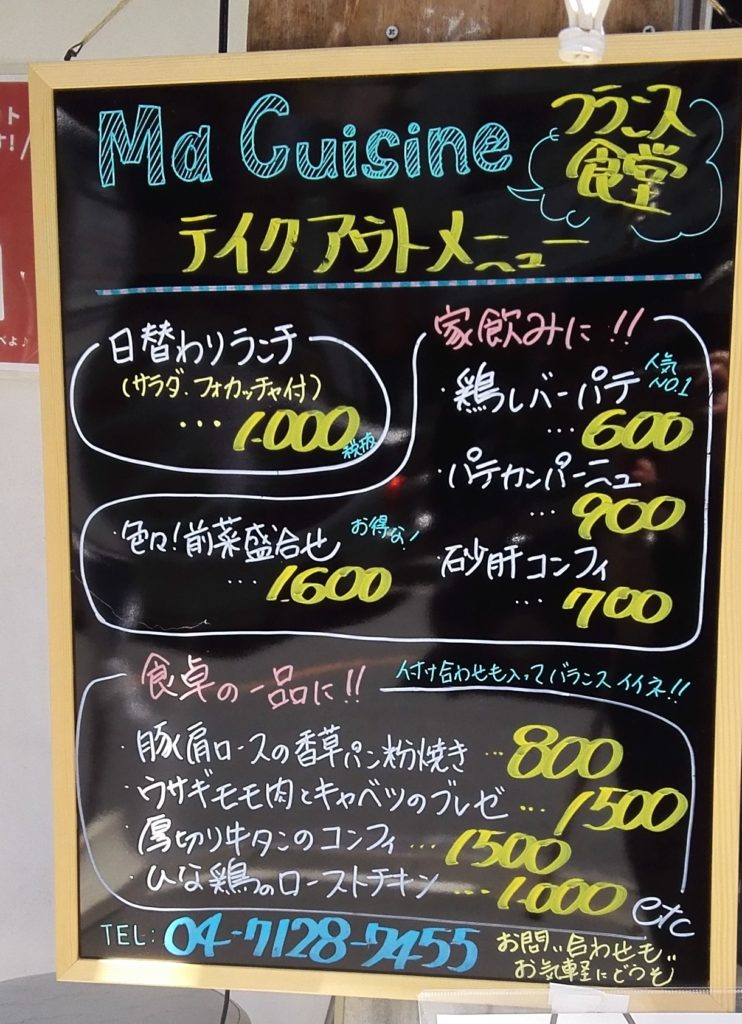 Ma Cuisine
フランス
食堂
テイクアウトメニュー
日替わりランチ
(サラダ、フォカッチャ付)
… 1.000
税抜
家飲みに!!
・鶏レバーパテ
人気
NO.1
… 600
・パテカンパーニュ
… 900
・砂肝コンフィ
… 700
・色々!前菜盛合せ
お得な!
… 1.600
食卓の一品に!!
付け合わせも入ってバランスイイネ!!
・豚肩ロースの香草パン粉焼き … 800
・ウサギモモ肉とキャベツのブレゼ … 1500
・厚切り牛タンのコンフィ … 1500
・ひな鶏のローストチキン … 1.000
etc
TEL: 04-7128-7455
お問い合わせも
お気軽にどうぞ